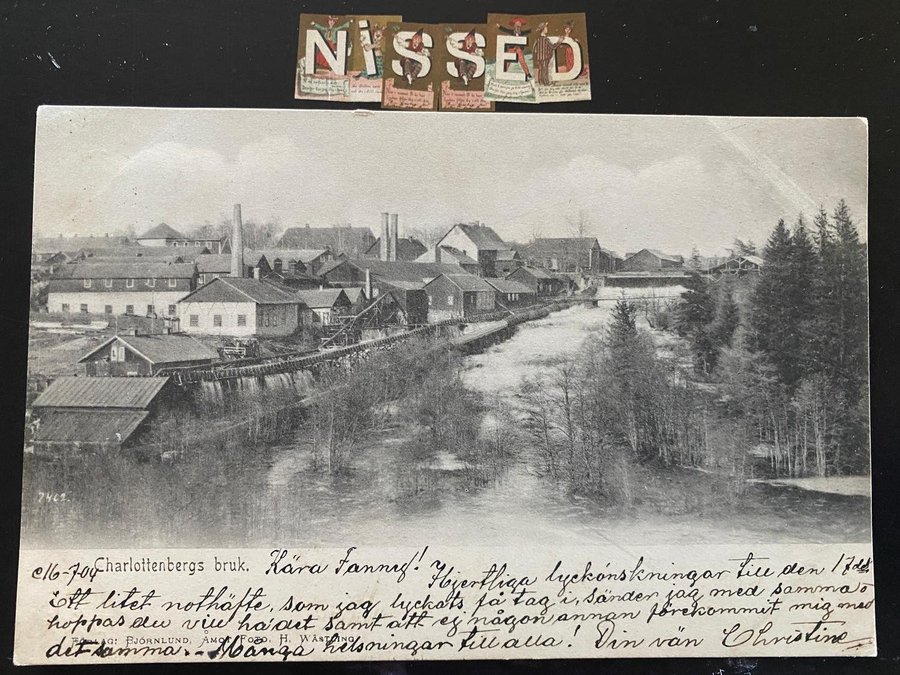 NiSSED
7462
Charlottenbergs bruk.
16-7-04 Kära Fanny! Hjertliga lyckönskningar till den 17de
Ett litet nothäfte, som jag lyckats få tag i, sänder jag med samma o
hoppas du vill ha det samt att ej någon annan förekommit mig med
FÖRLAG: BJÖRNLUND, ÅMOT. FOTO. H. WÄSTLING
det samma. - Många helsningar till alla! Din vän Christine